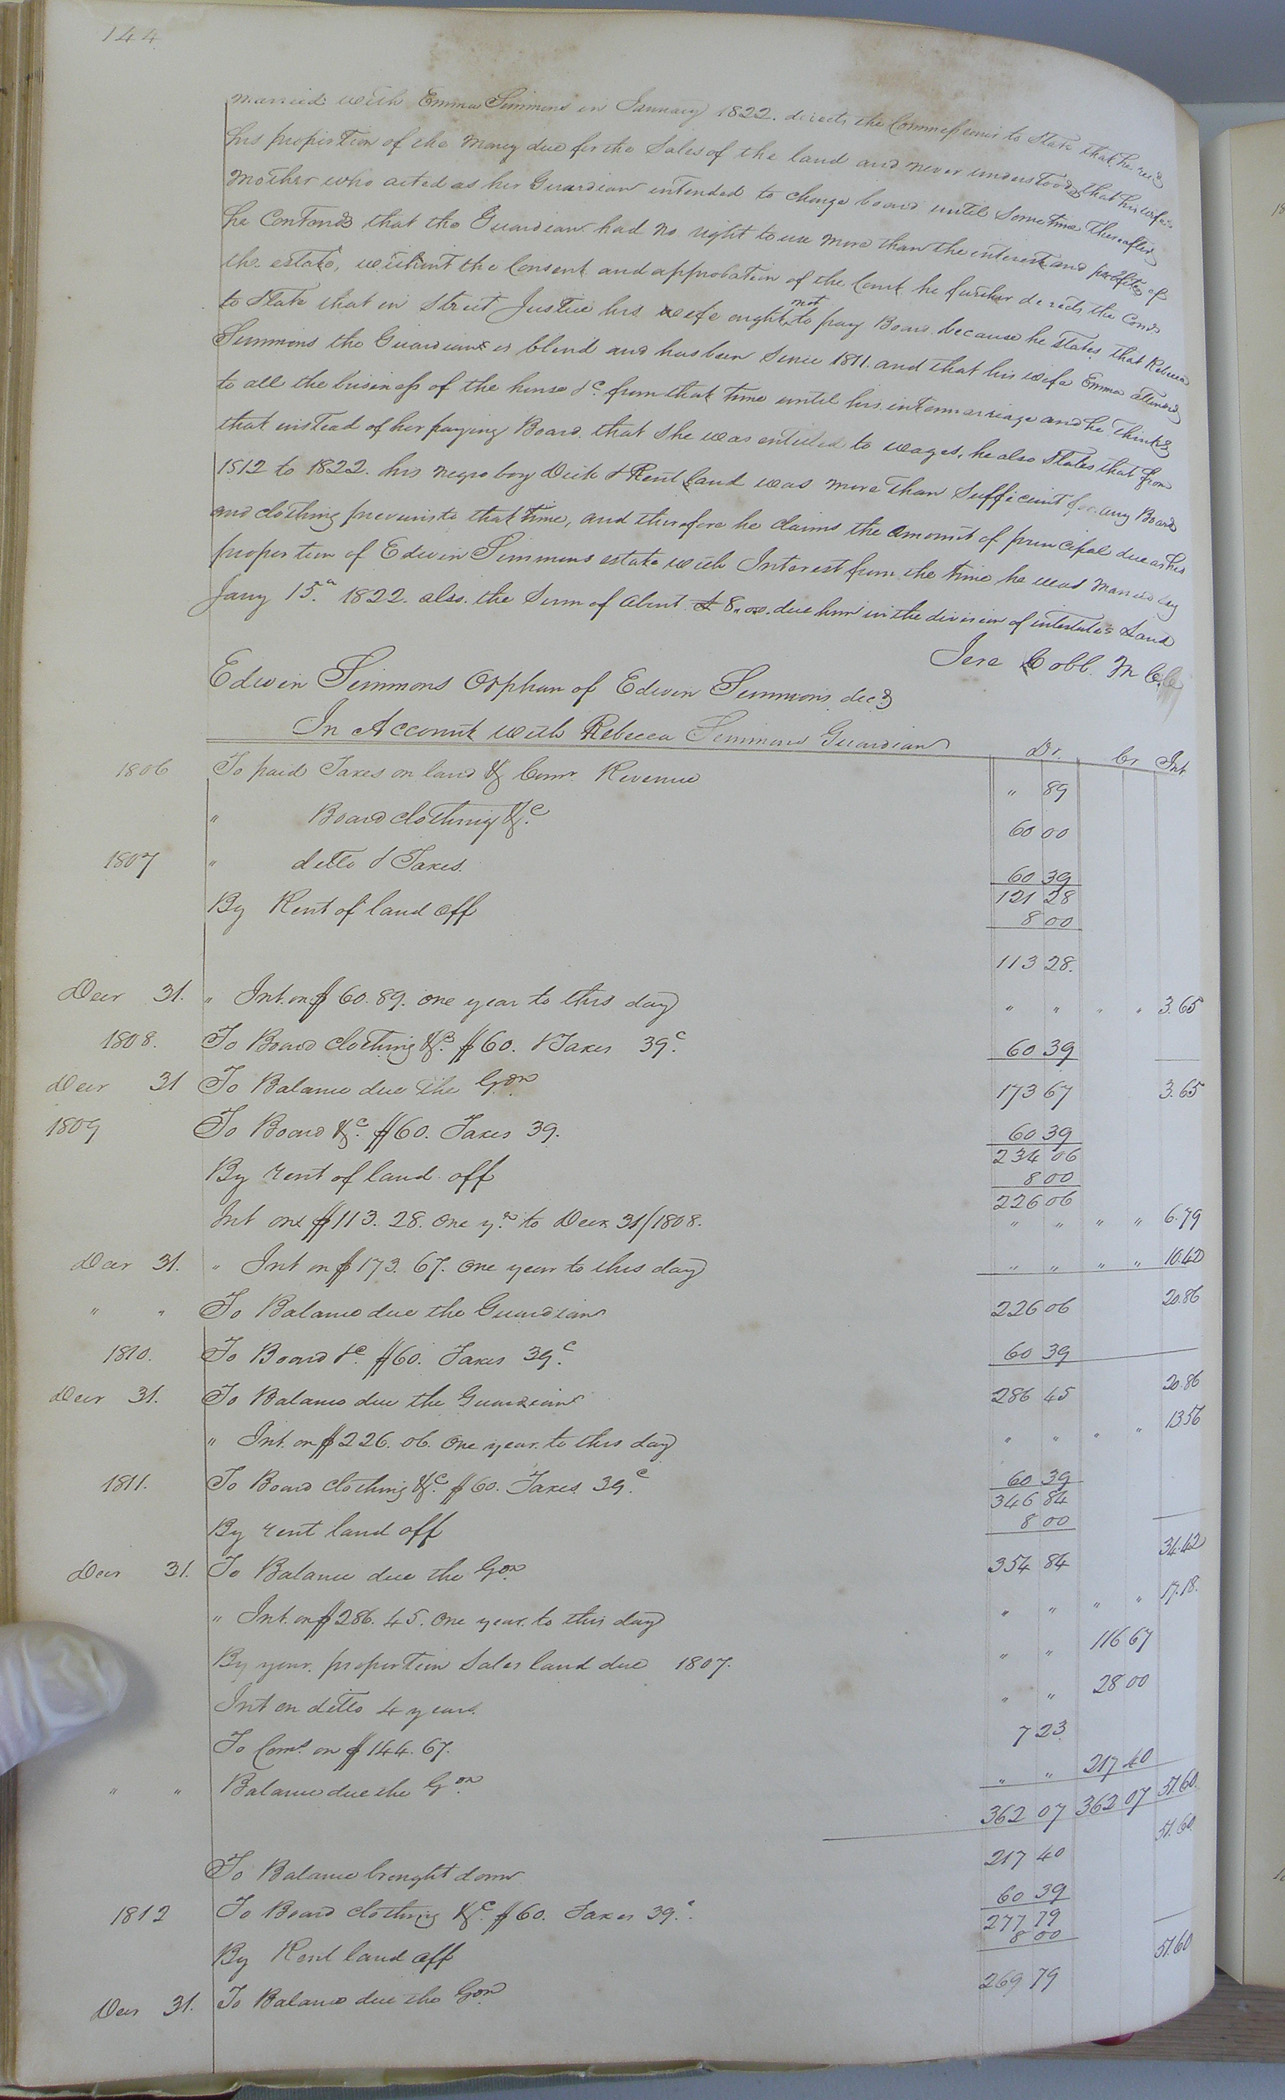 144
married with Emma Simmons in January 1822. directs the Commissioners to State that he recd
his proportion of the Money due for the Sales of the land and never understood that his wifes
Mother who acted as her Guardian intended to charge board until Sometime thereafter
he Contends that the Guardian had no right to use more than the interest and profits of
the estate, without the Consent and approbation of the Court he further directs the Comrs
to State that in Strict Justice his wife ought not to pay Board because he states that Rebecca
Simmons the Guardian is blind and has been Since 1811. and that his wife Emma attended
to all the business of the house &c. from that time until his intermarriage and he thinks
that instead of her paying Board that She was entitled to wages, he also States that from
1812 to 1822. his negro boy Dick & Rent Land was more than Sufficient for any Board
and clothing previous to that time, and therefore he claims the amount of principal due as his
proportion of Edwin Simmons estate with Interest from the time he was Married say
Jany 15. 1822. also the Sum of about $8.00. due him in the division of intestates Land
Jere Cobb
Edwin Simmons Orphan of Edwin Simmons decd
In Account with Rebecca Simmons Guardian Dr. Cr Int
1806 To paid Taxes on land & Revenue " 89
" Board clothing &c. 60 00
1807 " ditto & Taxes. 60 39
121 28
By Rent of land off 8 00
113 28.
Decr 31. " Int. on $60.89. one year to this day " " " " 3.65
1808. To Board clothing &c. $60. & Taxes 39c. 60 39
Decr 31 To Balance due the Gdn. 173 67 3.65
1809 To Board &c. $60. Taxes 39. 60 39
234 06
By rent of land off 8 00
226 06
Int on $113.28. one yr. to Decr 31/1808. " " " " 6.79
Decr 31. " Int on $173.67. one year to this day " " " " 10.42
" " To Balance due the Guardian 226 06 20.86
1810. To Board &c. $60. Taxes 39c. 60 39
Decr 31. To Balance due the Guardian 286 45 20.86
" Int. on $226.06. one year to this day " " " " 13.56
1811. To Board clothing &c. $60. Taxes 39.c 60 39
346 84
By rent land off 8 00
Decr 31. To Balance due the Gdn. 354 84 34.42
" Int. on $286.45. one year to this day " " " " 17.18.
By your proportion Sales land due 1807. " " 116 67
Int on ditto 4 years. " " 28 00
To Coms. on $144.67. 7 23
" " Balance due the Gdn. " " 217 40
362 07 362 07 51.60.
To Balance brought down 217 40 51.60
1812 To Board clothing &c. $60. Taxes 39.c. 60 39
277 79
By Rent land off 8 00
Decr 31. To Balance due the Gdn. 269 79 51.60